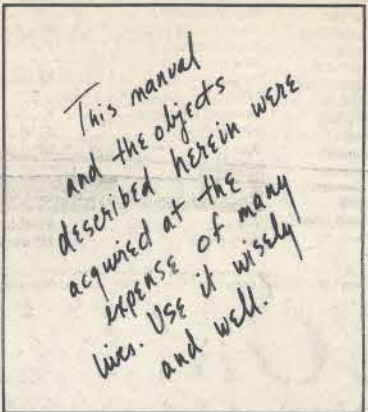 This manual
and the objects
described herein were
acquired at the
expense of many
lives. Use it wisely
and well.